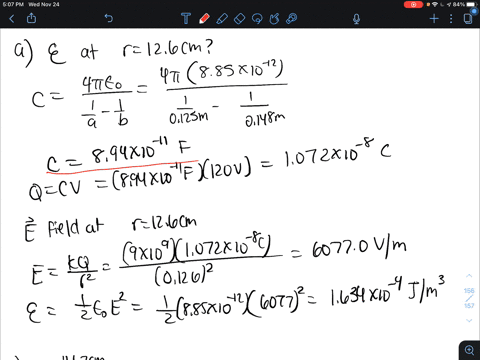 5:07 PM Wed Nov 24
84%
a) ℰ at r=12.6cm?
C = 4πε₀ / (1/a - 1/b) = 4π(8.85×10⁻¹²) / (1/0.125m - 1/0.148m)
C = 8.94×10⁻¹¹ F
Q=CV = (8.94×10⁻¹¹F)(120V) = 1.072×10⁻⁸ C
E⃗ field at r=12.6cm
E = kQ/r² = (9×10⁹)(1.072×10⁻⁸C) / (0.126)² = 6077.0 V/m
ℰ = 1/2 ε₀E² = 1/2 (8.85×10⁻¹²)(6077)² = 1.634×10⁻⁴ J/m³
156
157